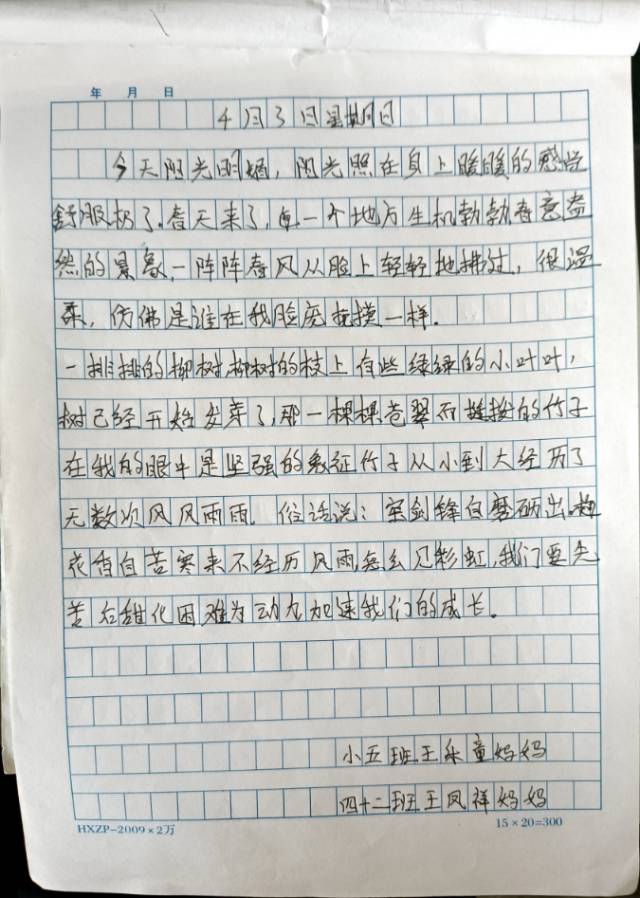 年 月 日
4月3日星期日
今天阳光明媚，阳光照在身上暖暖的感觉
舒服极了.春天来了,每一个地方生机勃勃春意盎
然的景象,一阵阵春风从脸上轻轻地拂过，很温
柔，仿佛是谁在我脸庞抚摸一样.
一排排的柳树,柳树的枝上有些绿绿的小叶叶，
树已经开始发芽了,那一棵棵苍翠而挺拔的竹子
在我的眼中是坚强的象征竹子从小到大经历了
无数次风风雨雨.俗话说：宝剑锋自磨砺出.梅
花香自苦寒来不经历风雨,怎么见彩虹,我们要先
苦后甜化困难为动力加速我们的成长。
小五班王采童妈妈
四十二班王凤祥妈妈
HXZP-2009×2万
15×20=300